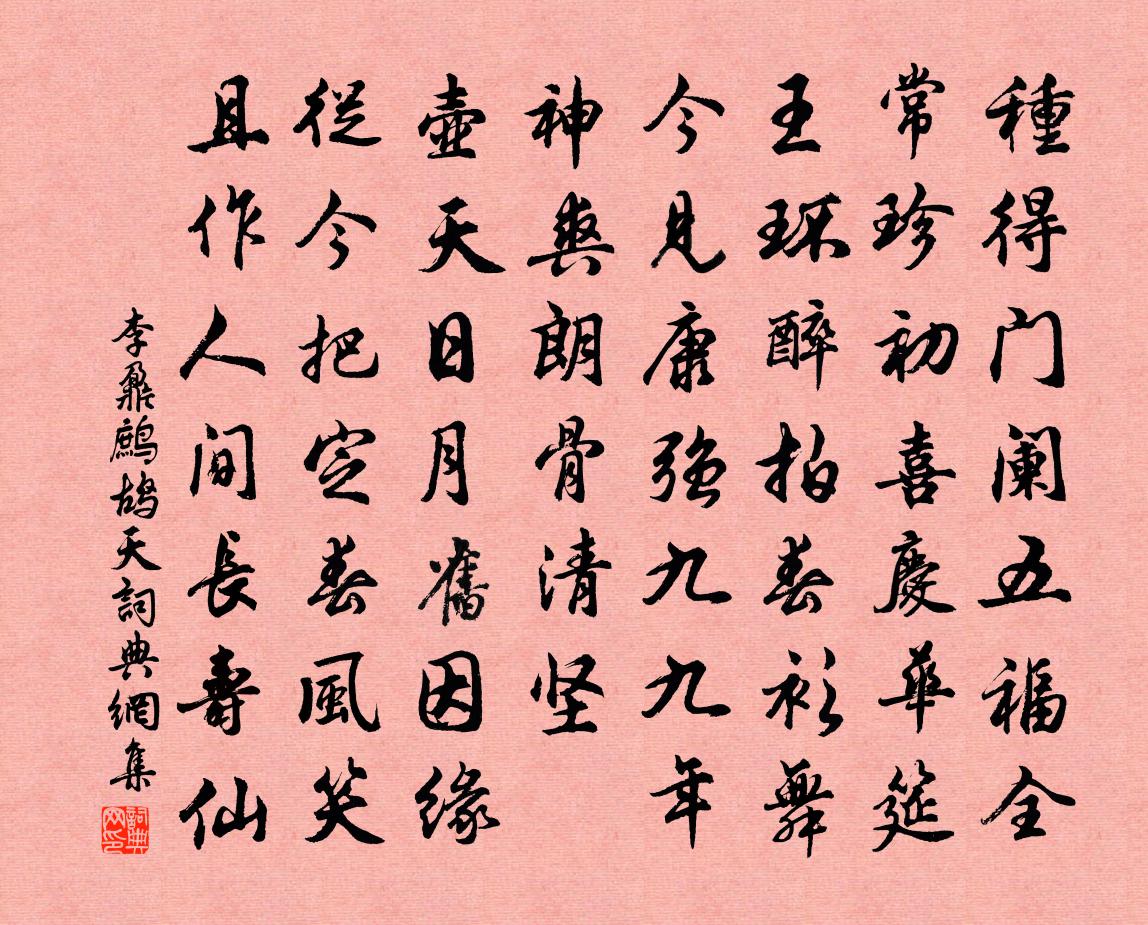 種得门阑五福全
常珍初喜慶華筵
王环醉拍春衫舞
今見康强九九年
神爽朗骨清坚
壺天日月舊因緣
從今把定春風笑
且作人间長壽仙
李鼐鷓鴣天詞典網集
詞典网印